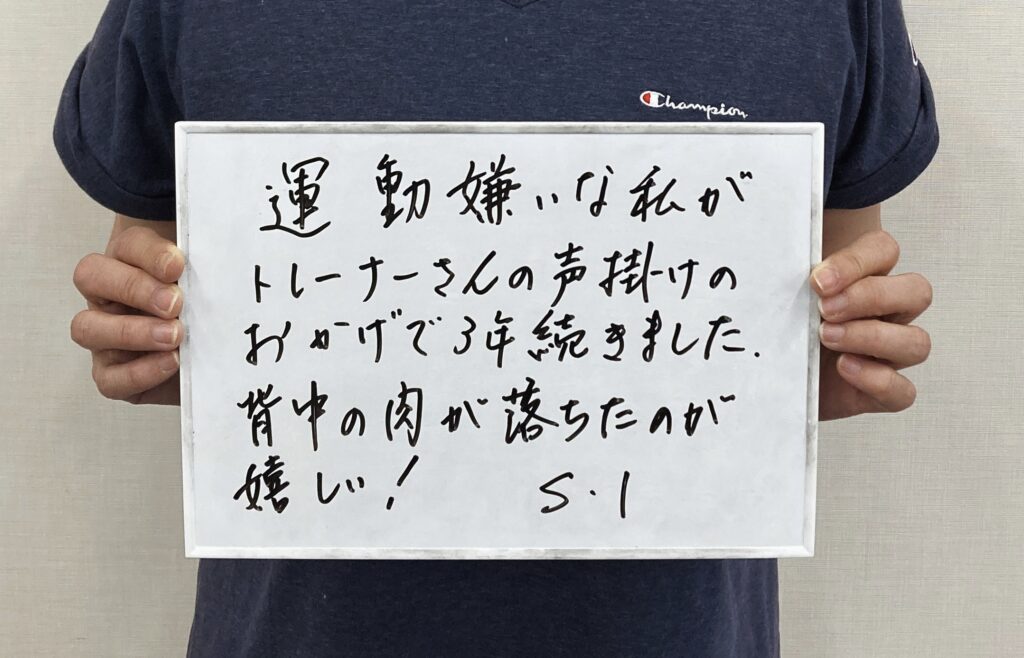 Champion
運動嫌いな私が
トレーナーさんの声掛けの
おかげで3年続きました.
背中の肉が落ちたのが
嬉しい! S.I